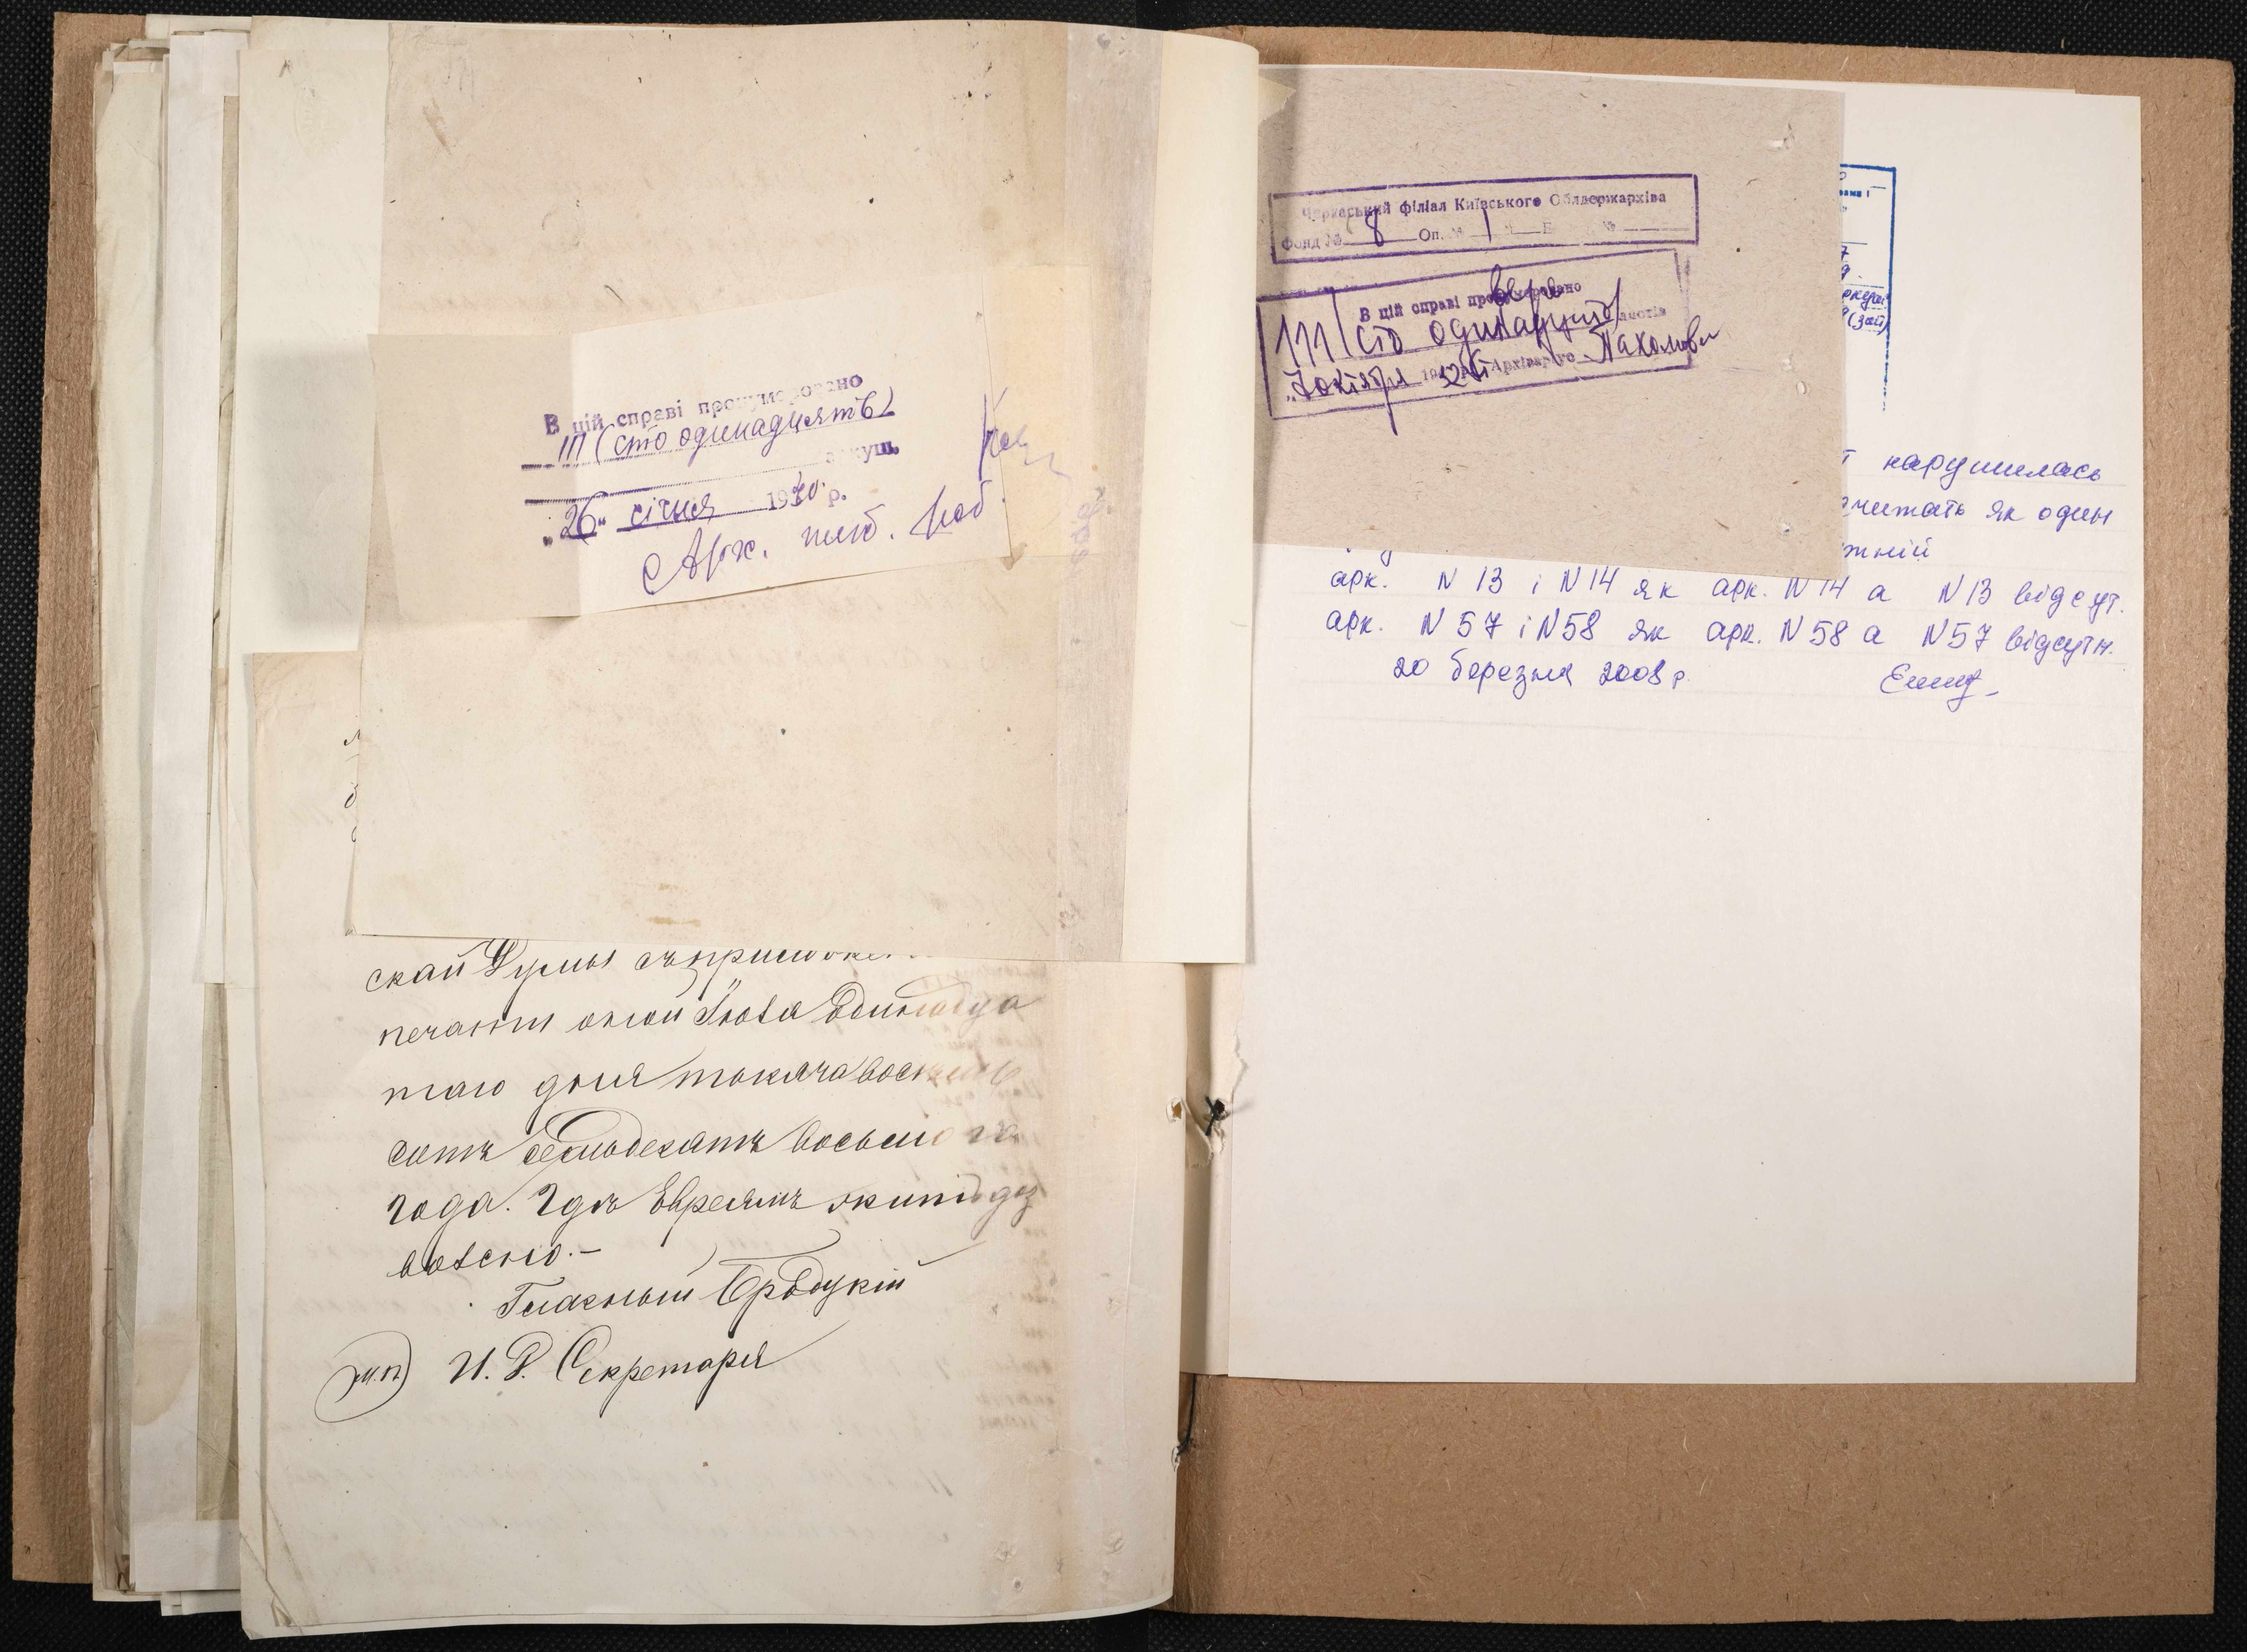 В цій справі пронумеровано
111 (сто одинадцять)
аркуш.
„26“ січня 1970 р.
Арх. тех.
ской Думы съ приложен
печати оной Іюля Одинадца
таго дня тысяча восемь
сотъ семьдесятъ восьмого
года. Гдѣ Евреямъ жить доз
волено.—
Гласный Бродуцкій
(М.П) И. Д. Секретаря
Черкаський філіал Київського Облдержархіва
Фонд № 8 Оп. № 1 №
В цій справі пронумеровано
111 (сто одинадцять) листів
„7 октября 1952 Архіваріус Пахолова
нарушилась
считать як один
арк. N 13 і N 14 як арк. N 14 а N 13 відсут.
арк. N 57 і N 58 як арк. N 58 а N 57 відсутн.
20 березня 2008 р.